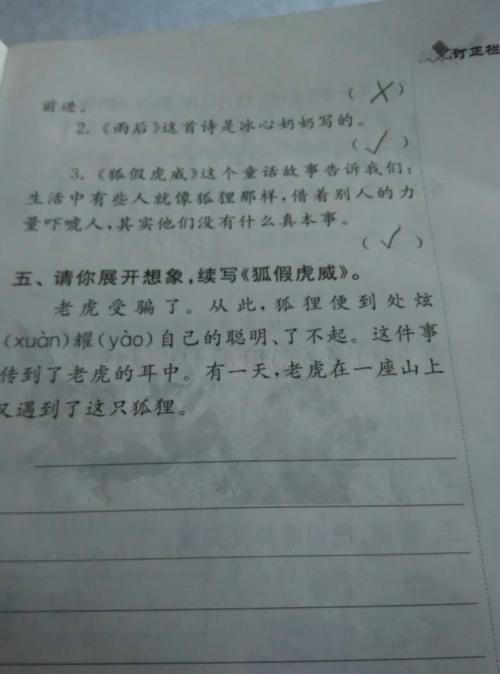 订正栏
前进。 (×)
2.《雨后》这首诗是冰心奶奶写的。
(√)
3.《狐假虎威》这个童话故事告诉我们:
生活中有些人就像狐狸那样,借着别人的力
量吓唬人,其实他们没有什么真本事。
(√)
五、请你展开想象,续写《狐假虎威》。
老虎受骗了。从此,狐狸便到处炫
(xuàn)耀(yào)自己的聪明、了不起。这件事
传到了老虎的耳中。有一天,老虎在一座山上
又遇到了这只狐狸。